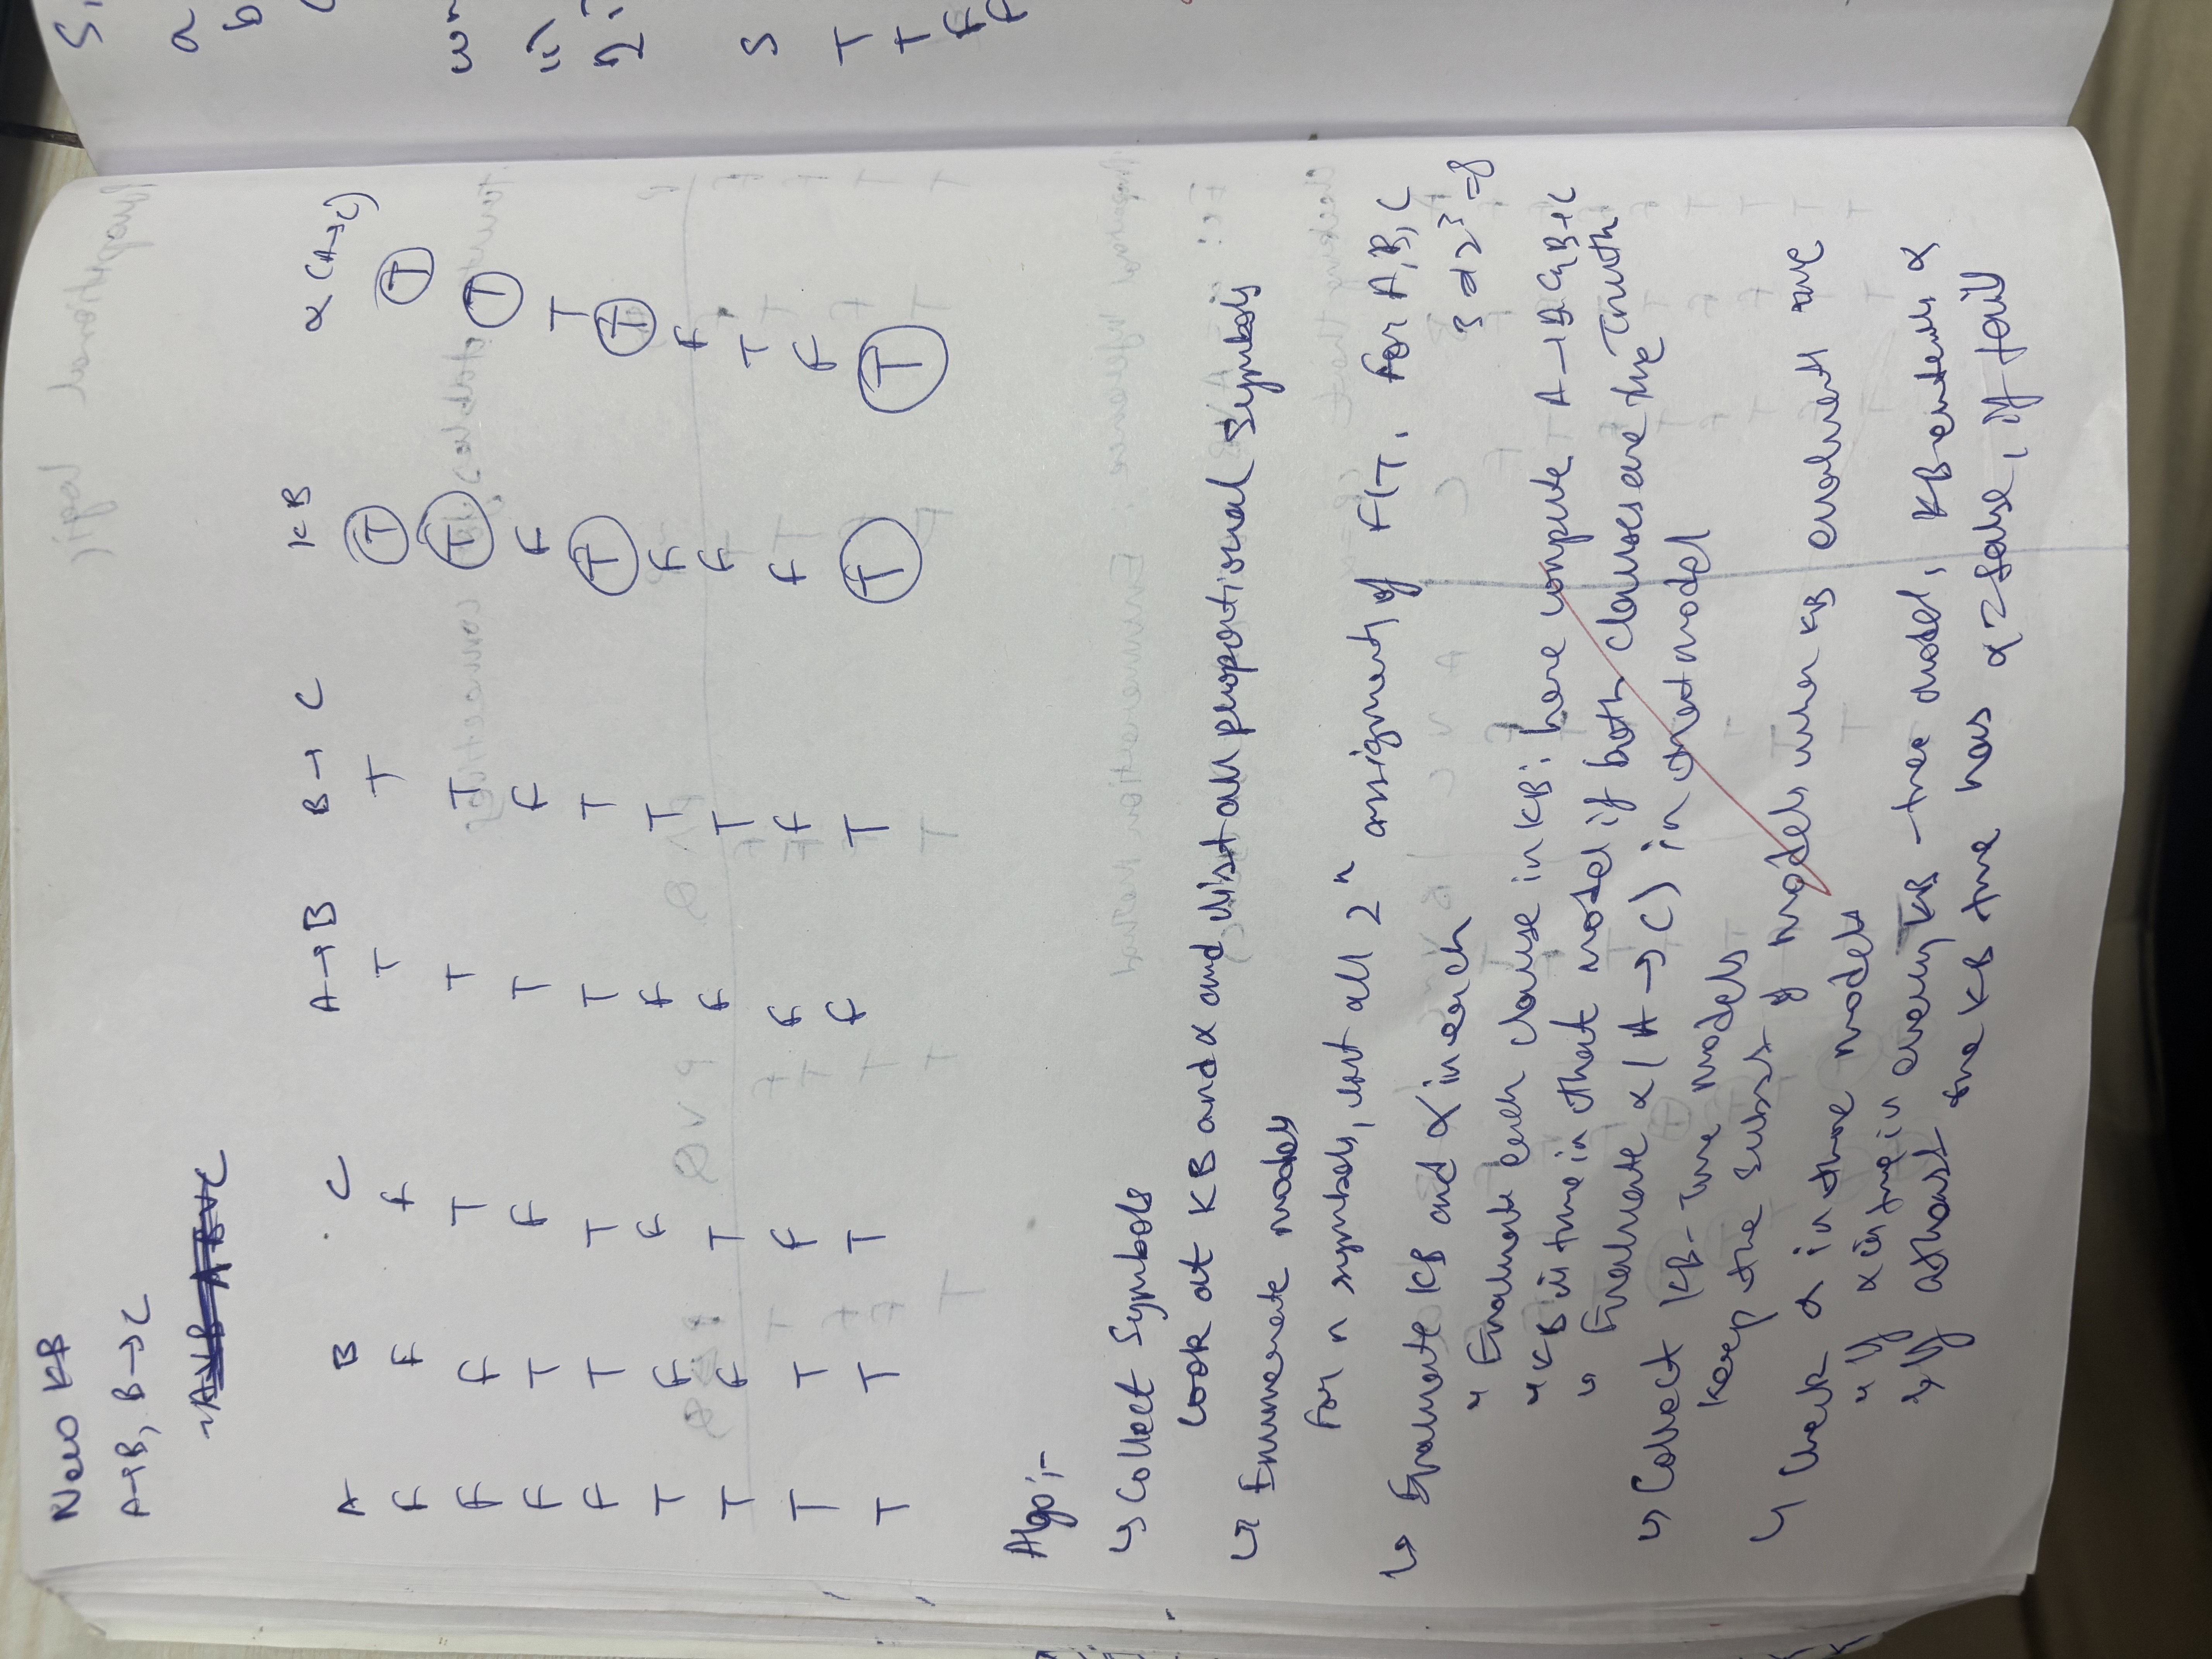 New KB
A→B, B→C
A B C A→B B→C KB α (A→C)
F F F T T T T
F F T T T T T
F T F T F F T
F T T T T T T
T F F F T F F
T F T F T F T
T T F F F F F
T T T F T T T
Algo:-
↳ Collect Symbols
Look at KB and α and list all proportional Symbols
↳ Enumerate models
For n symbols, list all 2ⁿ assigments of F/T. For A, B, C
3 ⇒ 2³ = 8
↳ Evaluate KB and α in each
" Evaluate each clause in KB: here compute A→B B→C
" KB is true in that model if both clauses are the Truth
" Evaluate α (A→C) in that model
↳ Collect KB-True models
Keep the subset of models when KB evaluates true
↳ Check α in those models
" If α is true in every KB-true model, KB entails α
If atleast one KB true has α = false, it fail
S
a
b
(
ii)
2.
S
T
T
F
F